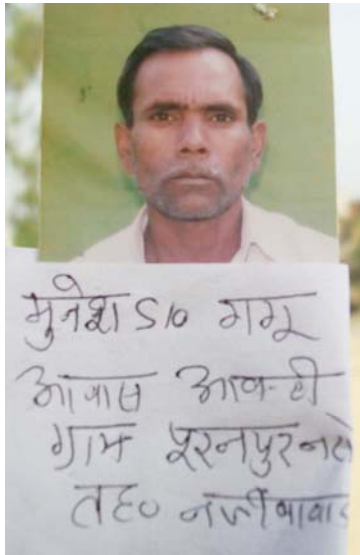 मुनेश S/o गगू
आवास आवन्टी
ग्राम पूरनपुर नंगला
तह० नजीबाबाद